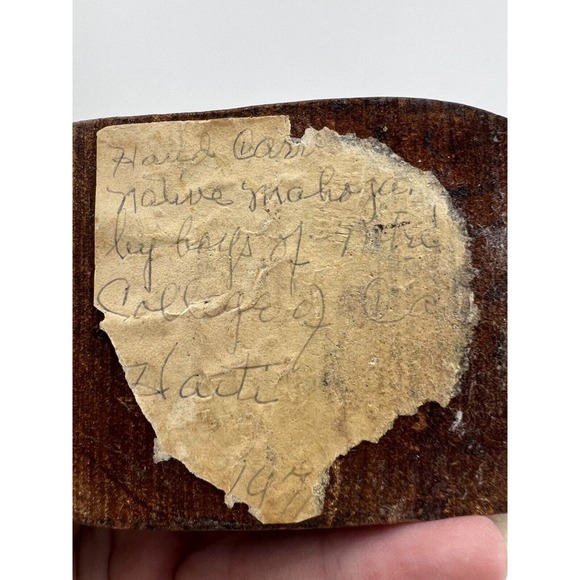 Hand Carv
native mahoga
by boys of
College of Ca
Haiti